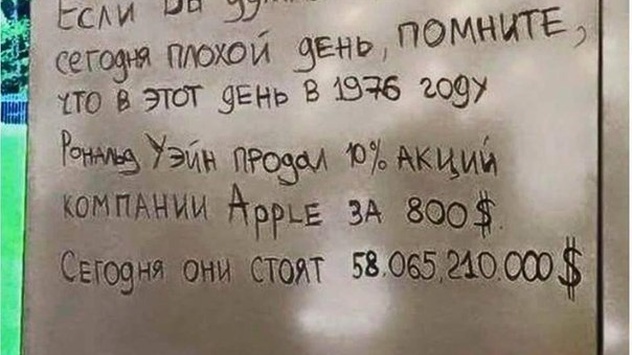 Если Вы
сегодня плохой день, помните,
что в этот день в 1976 году
Рональд Уэйн продал 10% акций
компании Apple за 800$
Сегодня они стоят 58.065,210.000$